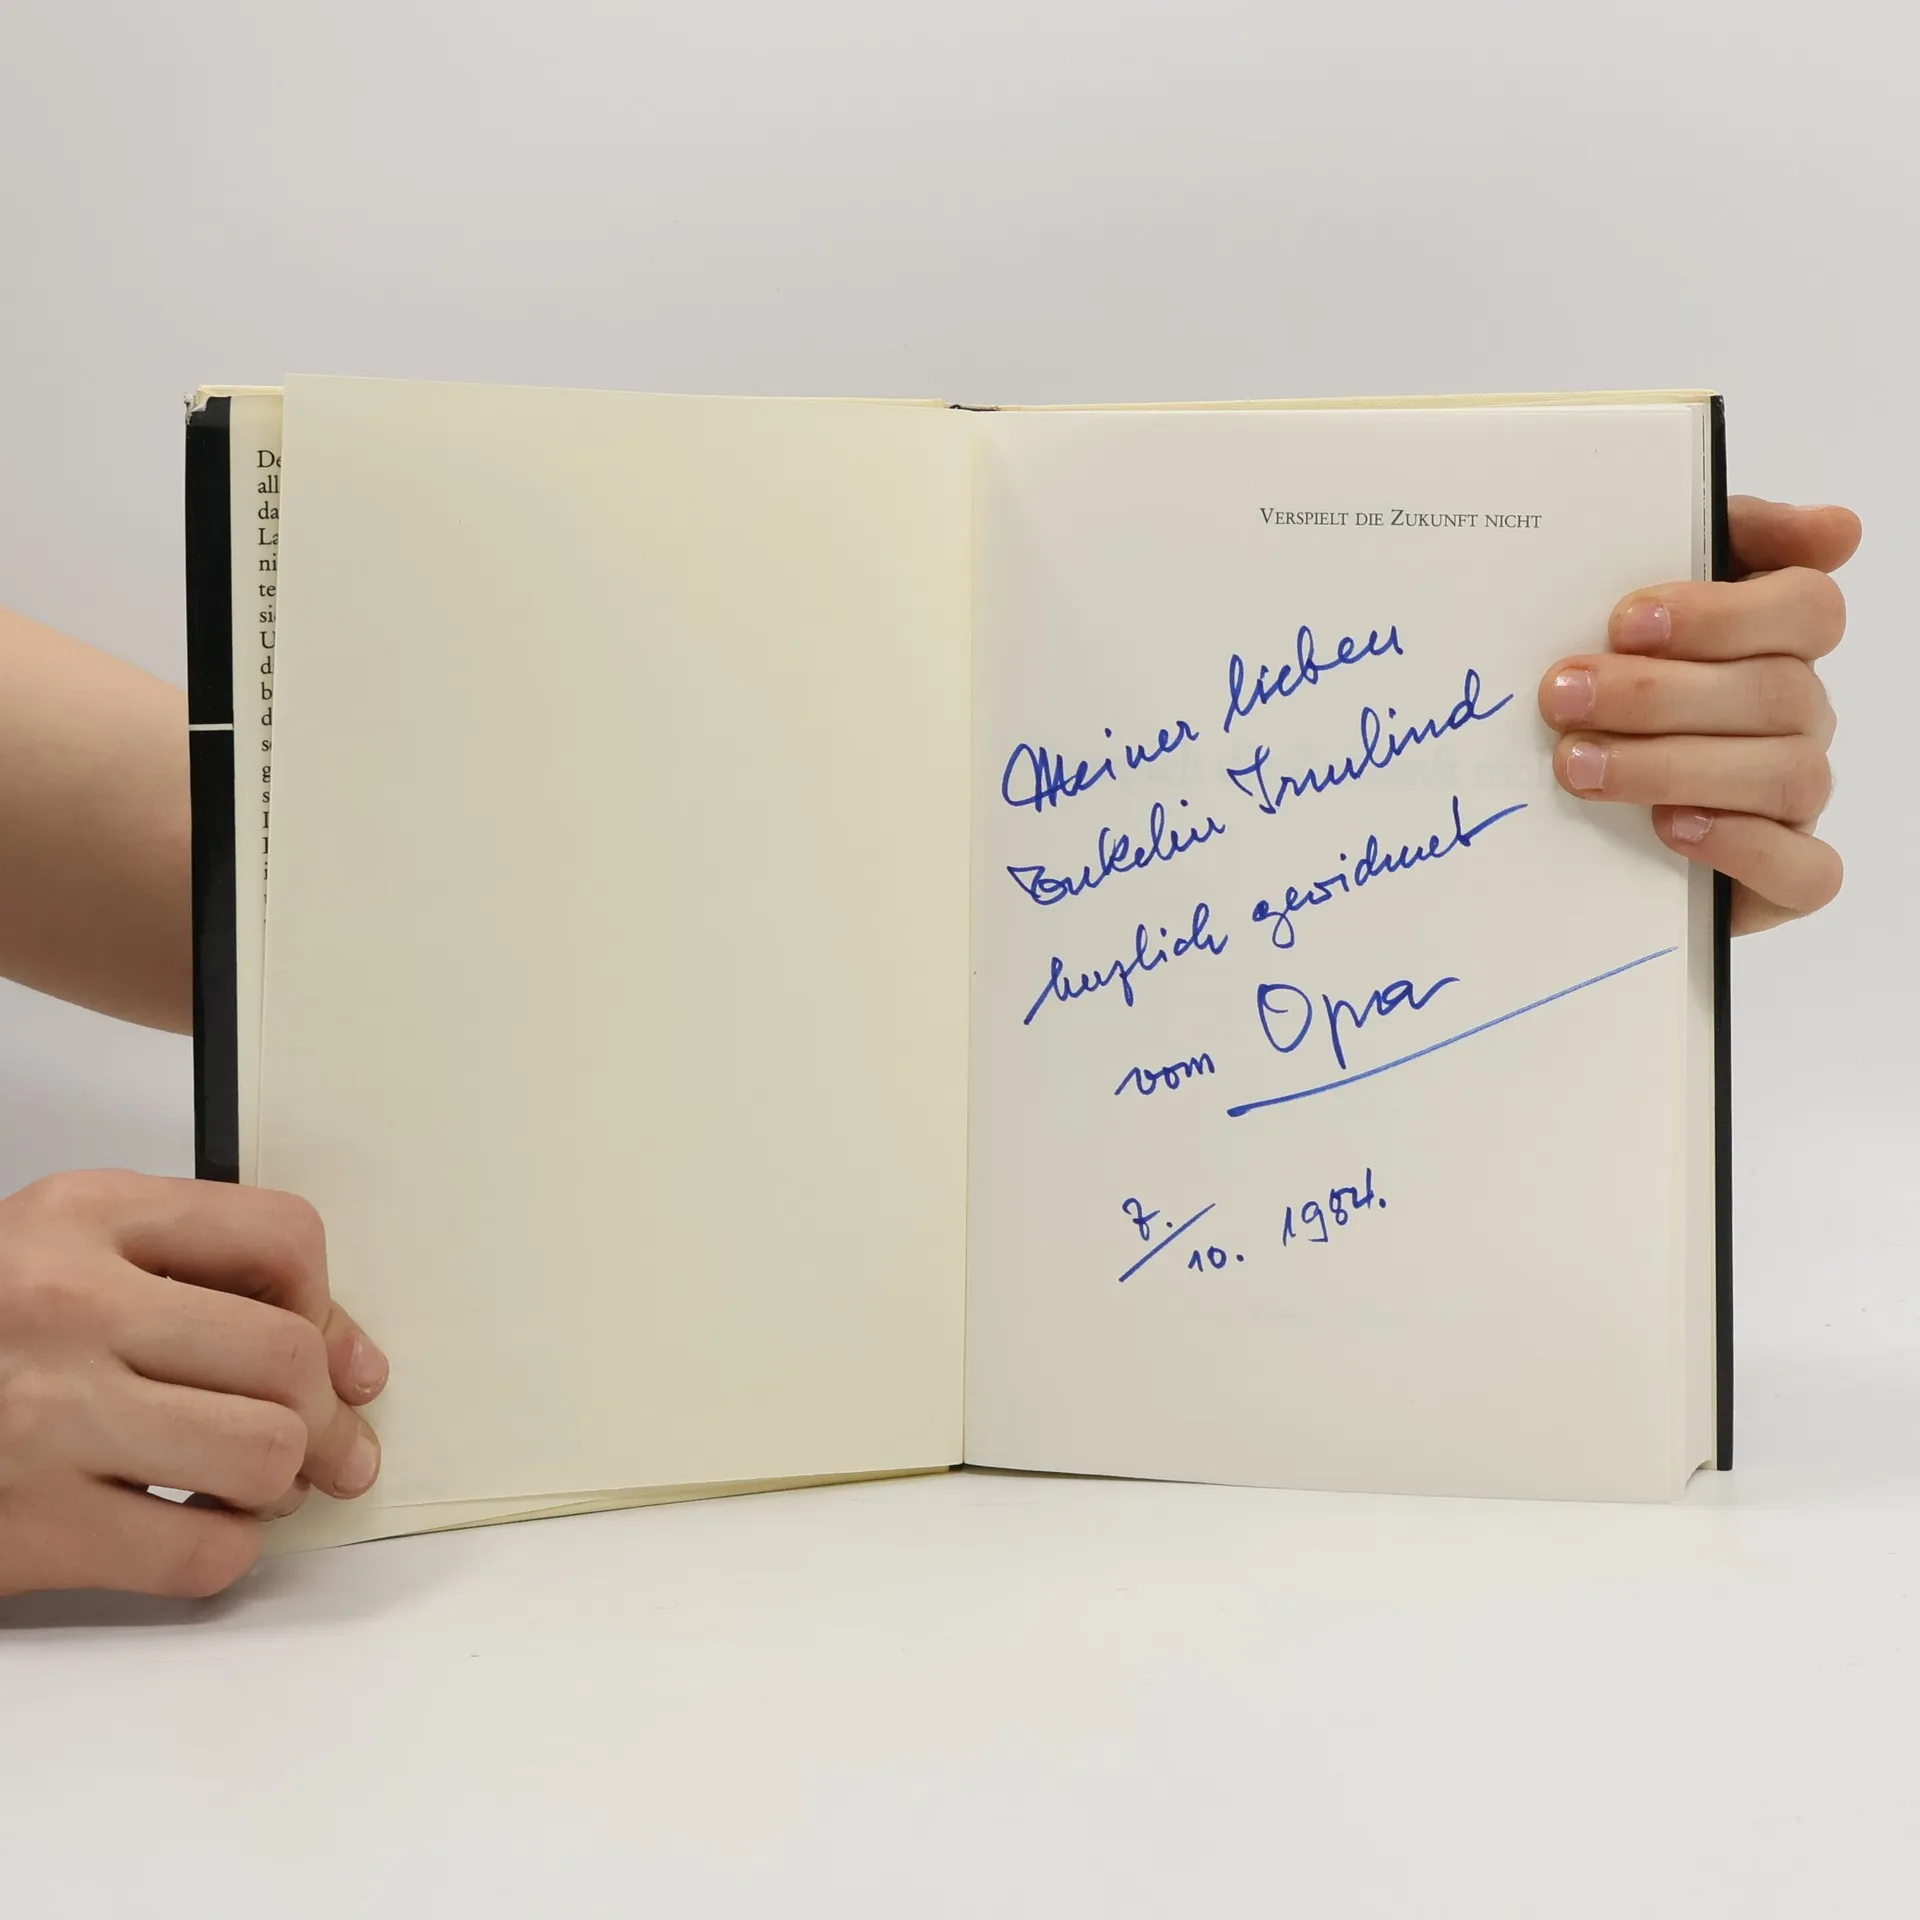 De
all
da
La
ni
te
sie
U
d
b
d
se
g
s
VERSPIELT DIE ZUKUNFT NICHT
Meiner lieben
Enkelin
herzlich gewidmet
vom Opa
7./10. 1984.